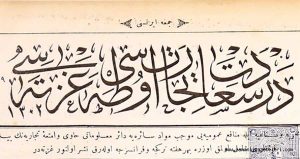 جمعه ایرتسی
در سعادت تجارت اوطه سی غزته سی
١٣٠٢
منافع عمومیه‌یی موجب مواد سائره‌یه دائر معلوماتی حاوی وامتعهٔ تجاریه‌نك
اوزره بهر هفته تركجه وفرانسزجه اوله‌رق نشر اولنور غزته‌در